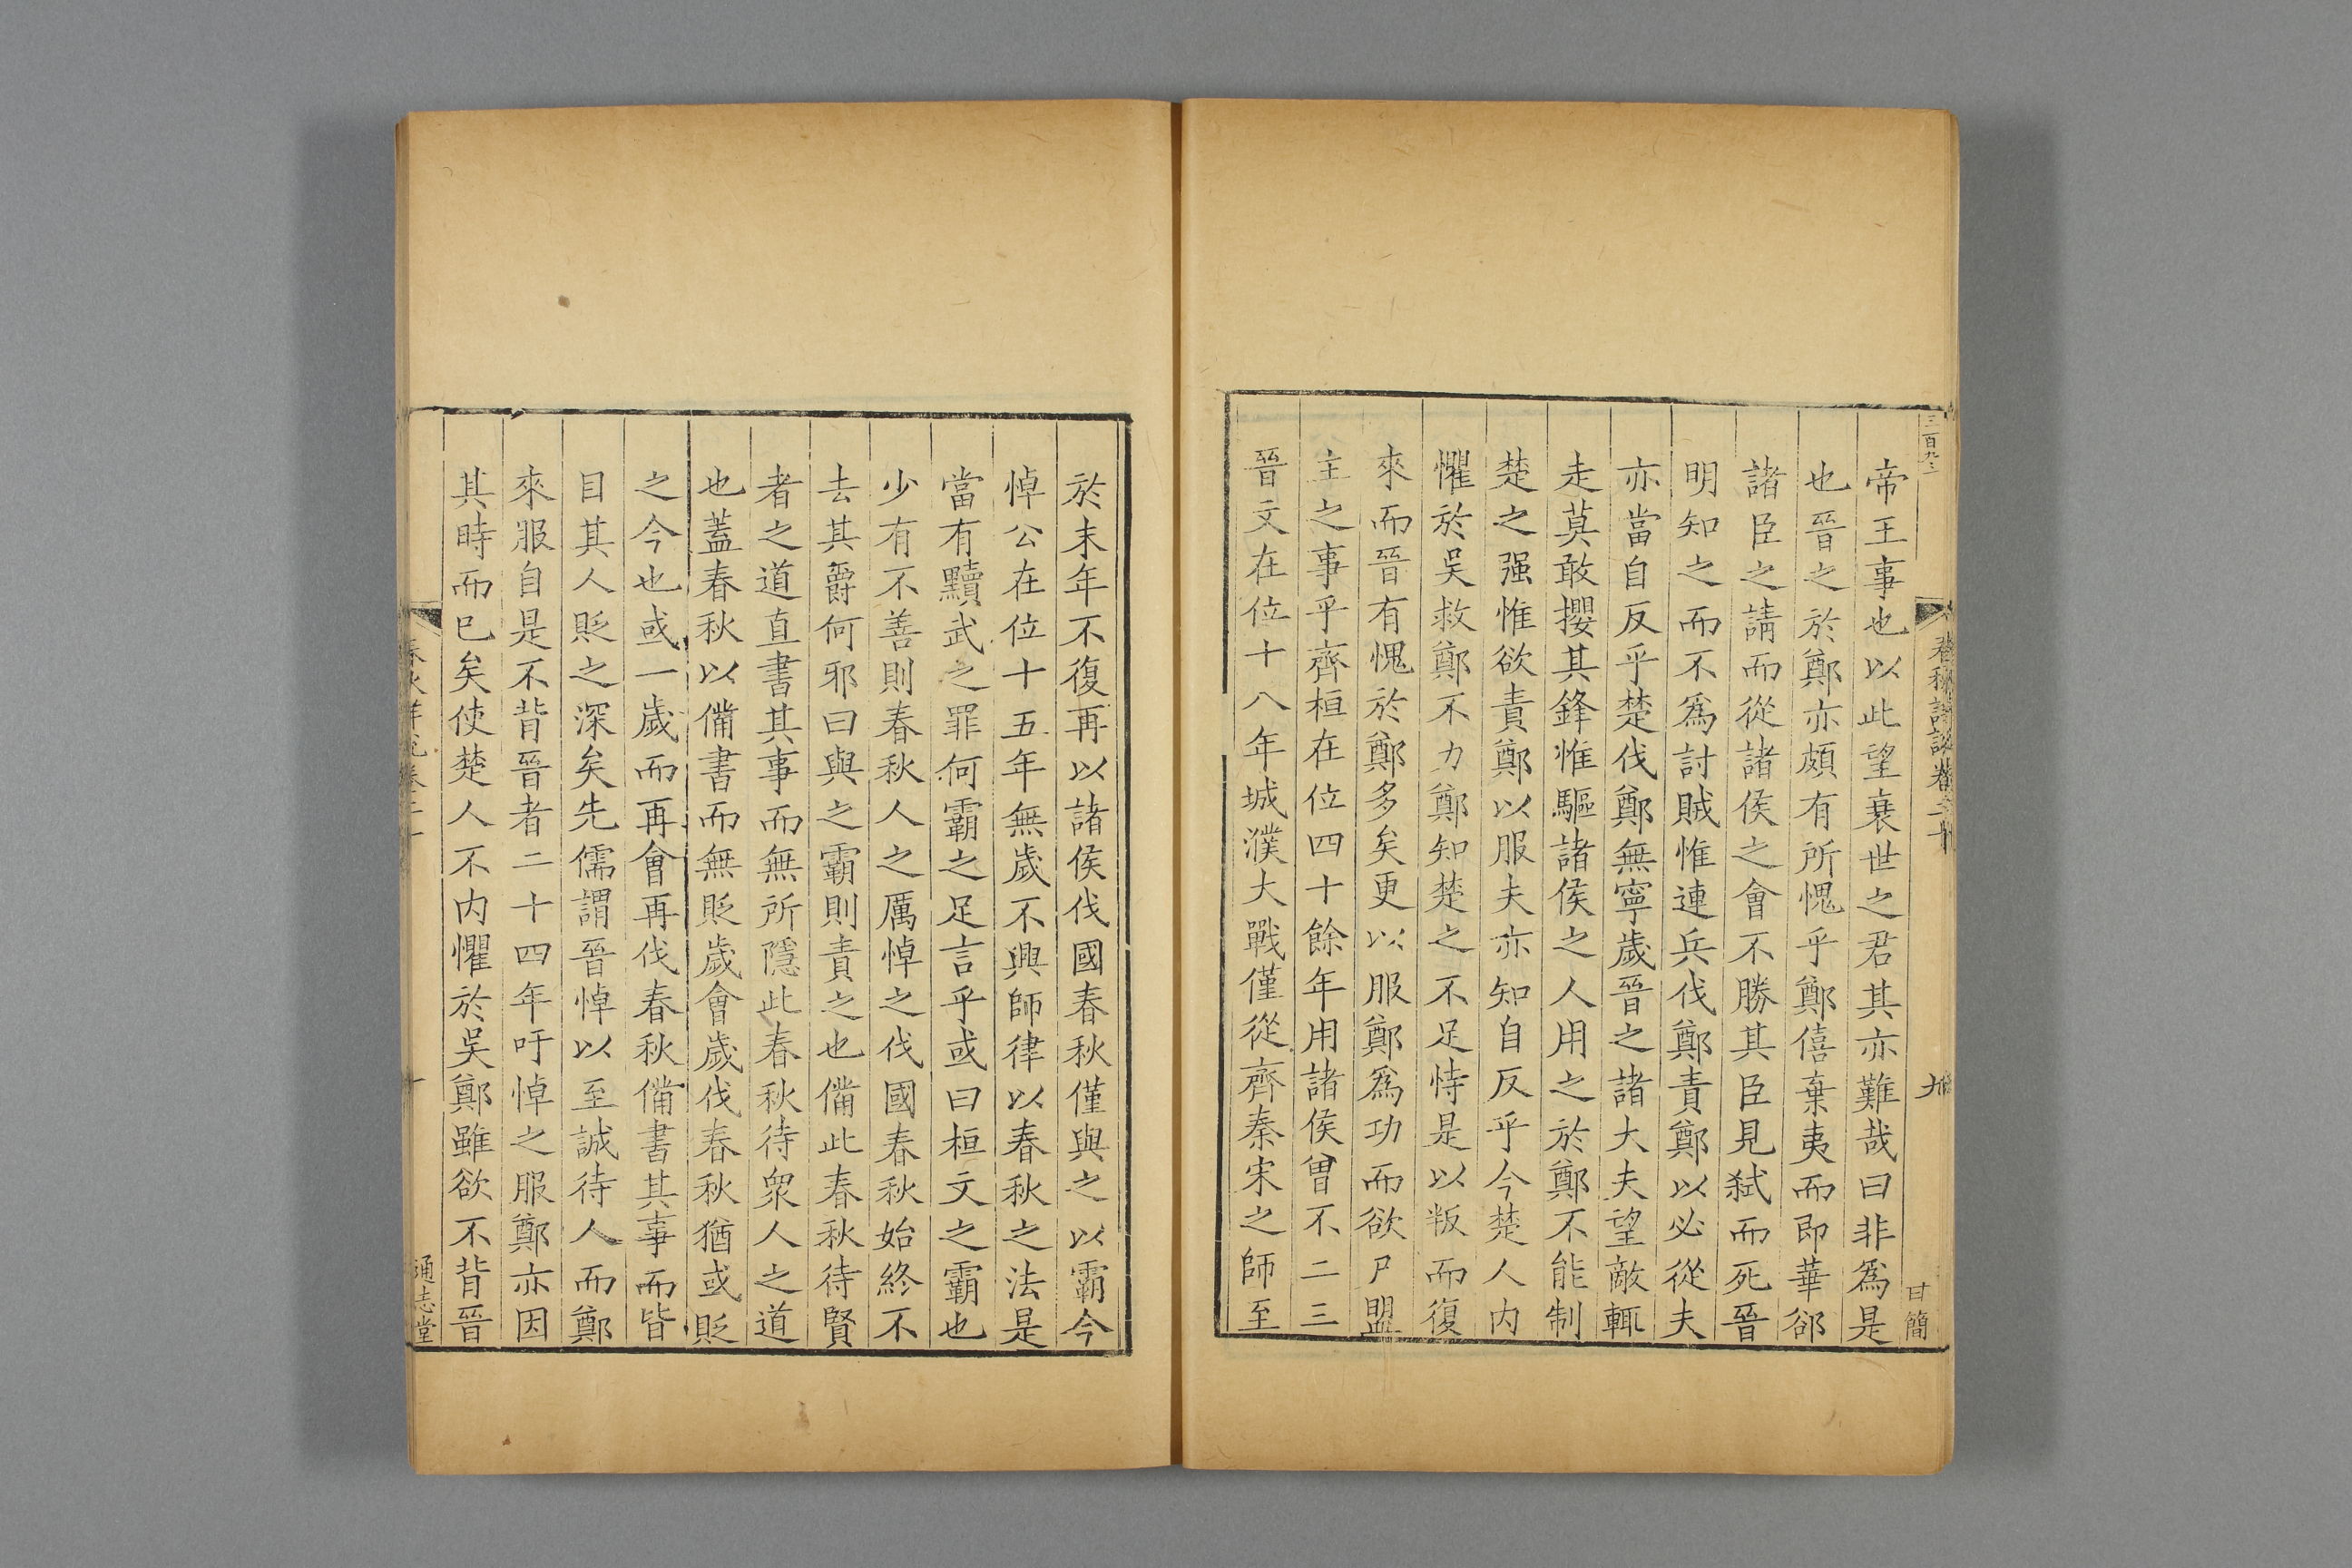 三百九
春秋詳說卷二十
九
甘簡
帝王事也以此望衰世之君其亦難哉曰非爲是
也晉之於鄭亦頗有所愧乎鄭僖棄夷而即華郤
諸臣之請而從諸侯之會不勝其臣見弑而死晉
明知之而不爲討賊惟連兵伐鄭責鄭以必從夫
亦當自反乎楚伐鄭無寧歲晉之諸大夫望敵輒
走莫敢攖其鋒惟驅諸侯之人用之於鄭不能制
楚之强惟欲責鄭以服夫亦知自反乎今楚人内
懼於吳救鄭不力鄭知楚之不足恃是以叛而復
來而晉有愧於鄭多矣更以服鄭爲功而欲尸盟
主之事乎齊桓在位四十餘年用諸侯曽不二三
晉文在位十八年城濮大戰僅從齊秦宋之師至
於末年不復再以諸侯伐國春秋僅與之以霸今
悼公在位十五年無歲不興師律以春秋之法是
當有黷武之罪何霸之足言乎或曰桓文之霸也
少有不善則春秋人之厲悼之伐國春秋始終不
去其爵何邪曰與之霸則責之也備此春秋待賢
者之道直書其事而無所隱此春秋待衆人之道
也蓋春秋以備書而無貶歲會歲伐春秋猶或貶
之今也或一歲而再會再伐春秋備書其事而皆
目其人貶之深矣先儒謂晉悼以至誠待人而鄭
來服自是不背晉者二十四年吁悼之服鄭亦因
其時而已矣使楚人不内懼於吳鄭雖欲不背晉
春秋詳說卷二十
十
通志堂